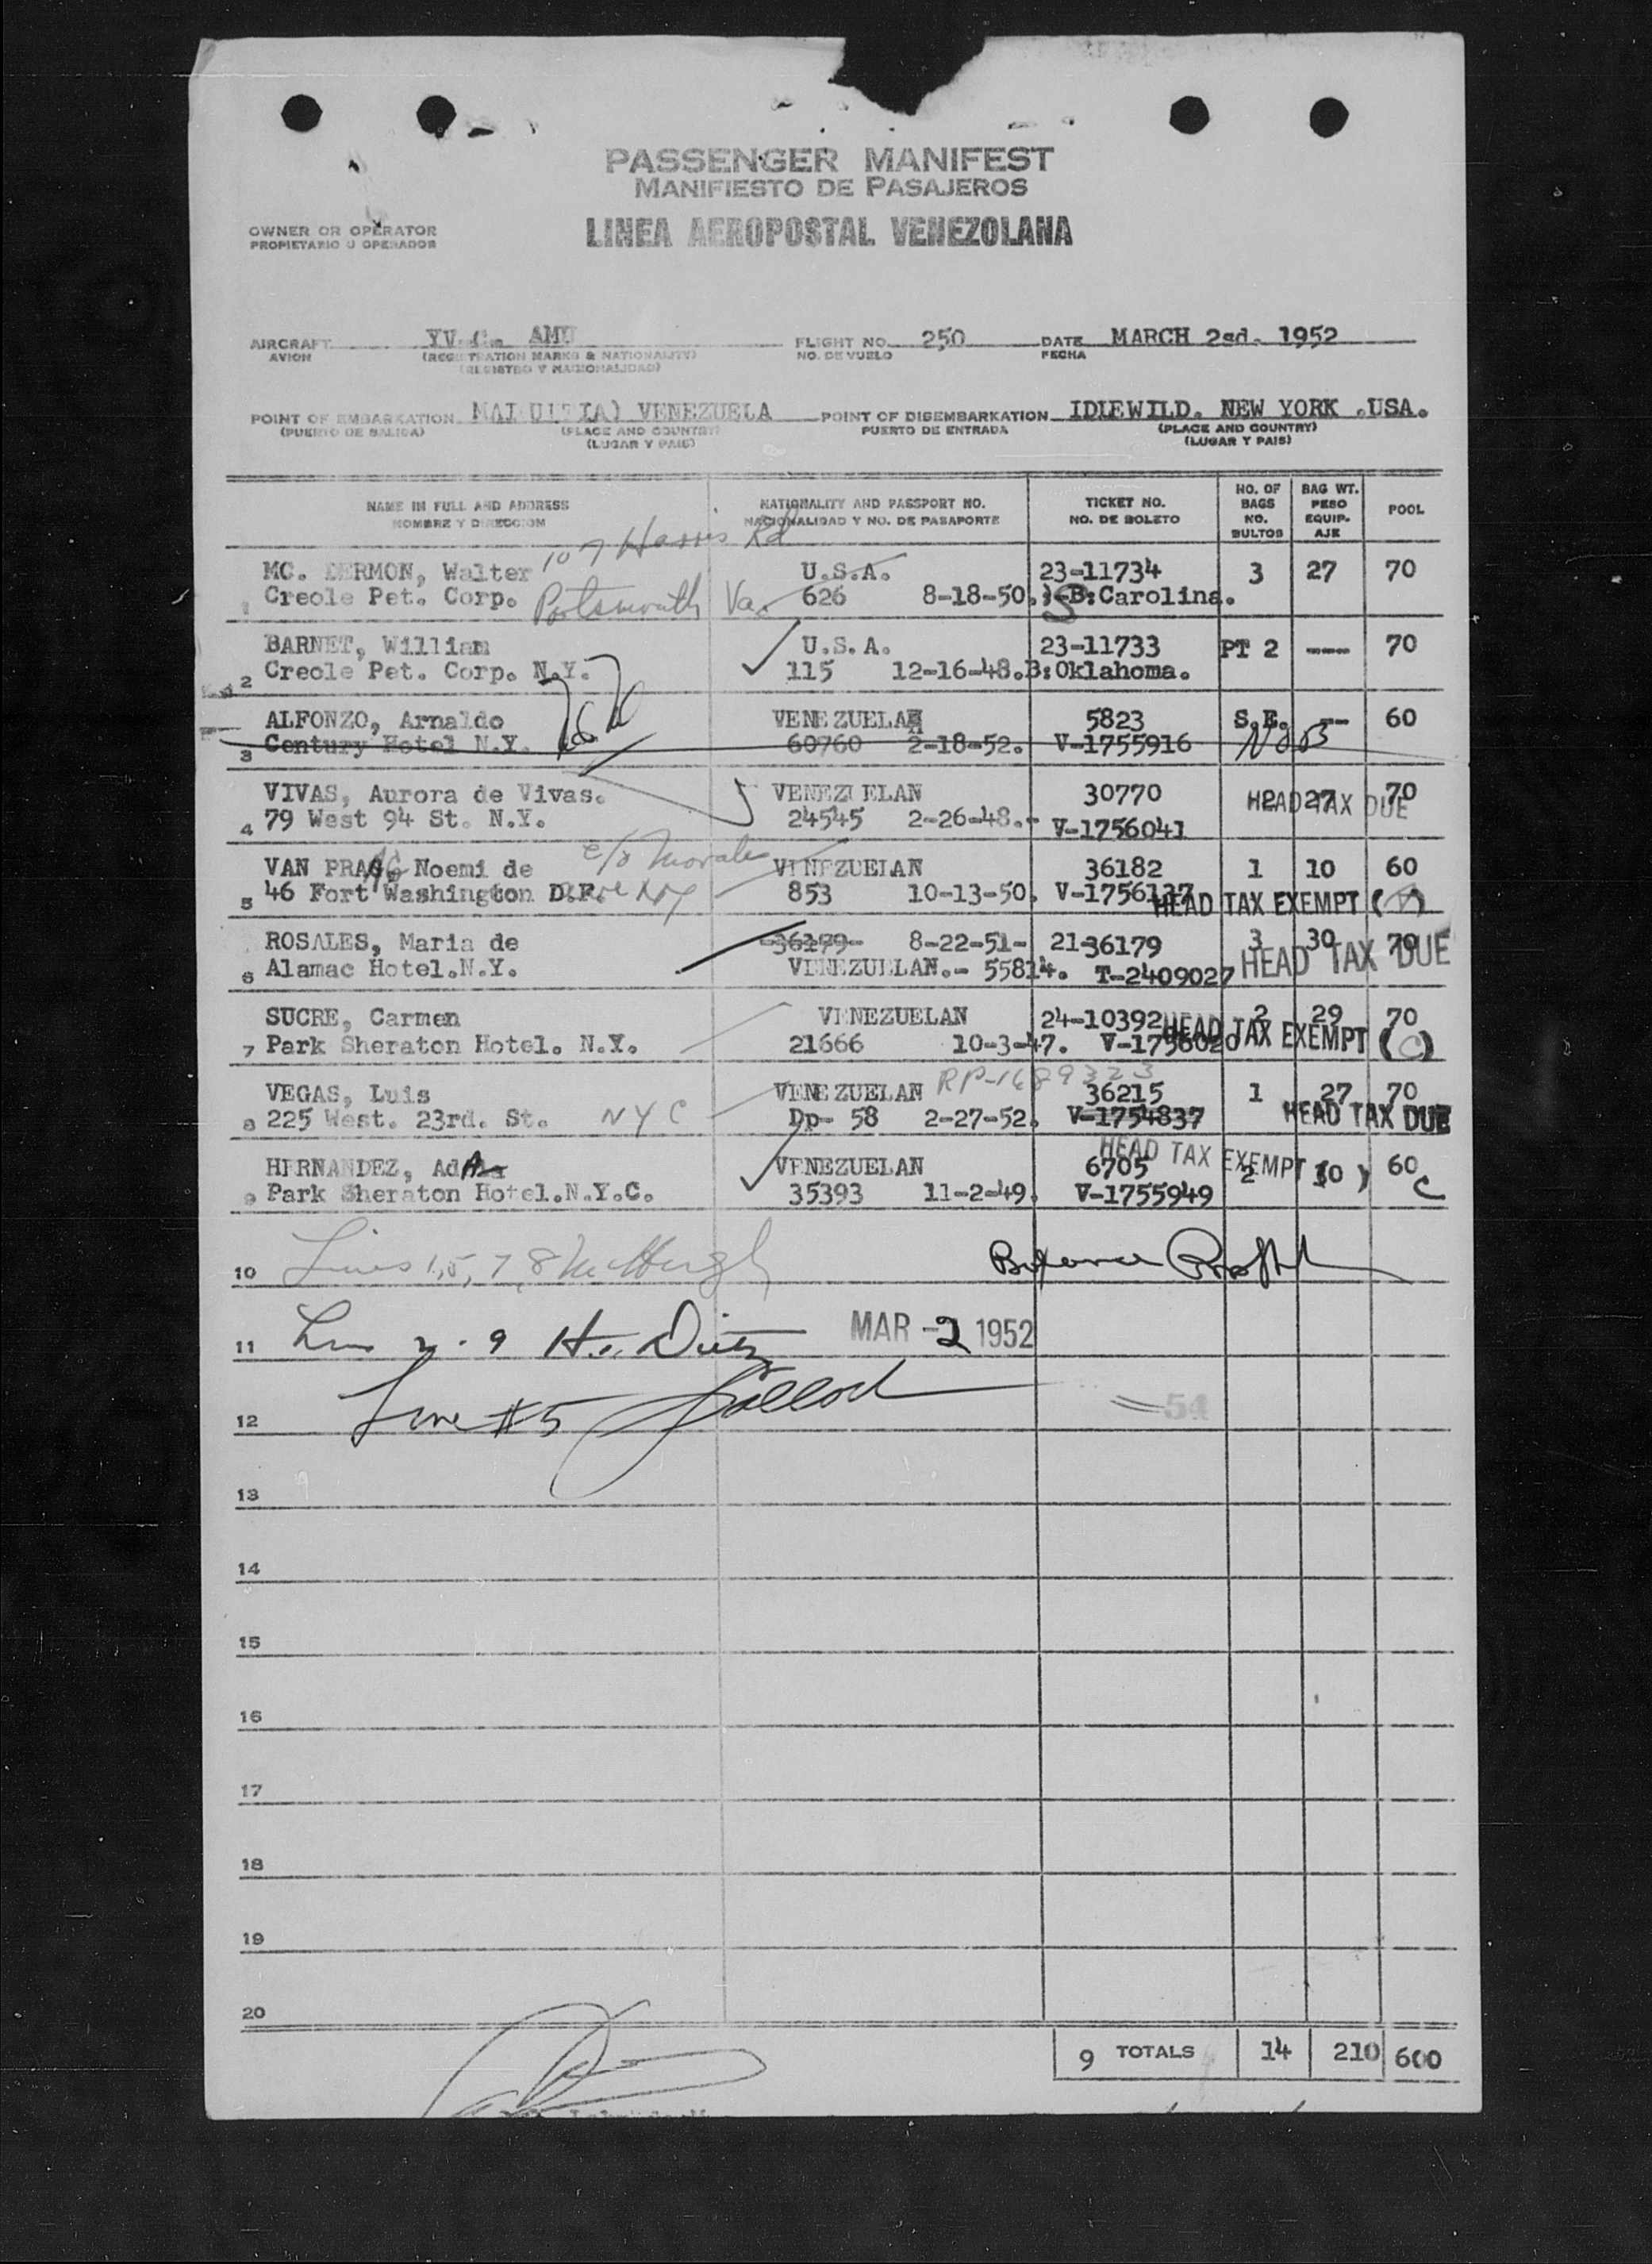 PASSENGER MANIFEST
MANIFIESTO DE PASAJEROS
OWNER OR OPERATOR
PROPIETARIO U OPERADOR
LINEA AEROPOSTAL VENEZOLANA
AIRCRAFT YV AMU FLIGHT NO. 250 DATE MARCH 2sd. 1952
AVION (REGISTRATION MARKS & NATIONALITY) NO. DE VUELO FECHA
(REGISTRO Y NACIONALIDAD)
POINT OF EMBARKATION VENEZUELA POINT OF DISEMBARKATION IDLEWILD. NEW YORK .USA.
(PUERTO DE SALIDA) (PLACE AND COUNTRY) PUERTO DE ENTRADA (PLACE AND COUNTRY)
(LUGAR Y PAIS) (LUGAR Y PAIS)
NAME IN FULL AND ADDRESS NATIONALITY AND PASSPORT NO. TICKET NO. NO. OF BAGS BAG WT. POOL
NOMBRE Y DIRECCION NACIONALIDAD Y NO. DE PASAPORTE NO. DE BOLETO NO. BULTOS PESO EQUIP-AJE
107 Harris Rd
MC. DERMON, Walter U.S.A. 23-11734 3 27 70
1 Creole Pet. Corp. Portsmouth Va. 626 8-18-50. S B:Carolina.
BARNET, William U.S.A. 23-11733 PT 2 --- 70
2 Creole Pet. Corp. N.Y. 115 12-16-48.B:Oklahoma.
ALFONZO, Arnaldo VENEZUELAN 5823 S.E. -- 60
3 Century Hotel N.Y. 60760 2-18-52. V-1755916 No B
VIVAS, Aurora de Vivas. VENEZUELAN 30770 2 27 70
HEAD TAX DUE
4 79 West 94 St. N.Y. 24545 2-26-48.- V-1756041
c/o Morales
VAN PRAAG, Noemi de VENEZUELAN 36182 1 10 60
5 46 Fort Washington 853 10-13-50. V-1756137
HEAD TAX EXEMPT ( )
ROSALES, Maria de 36179- 8-22-51- 21-36179 3 30 70
HEAD TAX DUE
6 Alamac Hotel.N.Y. VENEZUELAN.- 55814. T-2409027
SUCRE, Carmen VENEZUELAN 24-10392 2 29 70
HEAD TAX EXEMPT (C)
7 Park Sheraton Hotel. N.Y. 21666 10-3-47. V-1756020
RP-1689323
VEGAS, Luis VENEZUELAN 36215 1 27 70
8 225 West. 23rd. St. NYC Dp- 58 2-27-52. V-1754837 HEAD TAX DUE
HEAD TAX EXEMPT ( )
HERNANDEZ, VENEZUELAN 6705 2 60 C
9 Park Sheraton Hotel.N.Y.C. 35393 11-2-49. V-1755949
10 Lines 1,5,7,8 McHugh
11 2-9 H. Dietz MAR -2 1952
12 Line #5
54
13
14
15
16
17
18
19
20
9 TOTALS 14 210 600